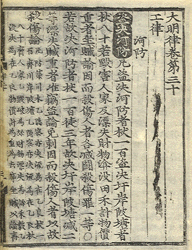 大明律卷第三十
工律
河防
盜決河防 凡盜決河防者杖一百盜決圩岸陂塘者
杖八十若毀害人家及漂失財物渰沒田禾計物價
重者坐贓論因而殺傷人者各減鬪殺傷罪一等○
若故決河防者杖一百徒三年故決圩岸陂塘減二
等漂失贓重者准竊盜論免刺因而殺傷人者以故
殺傷論